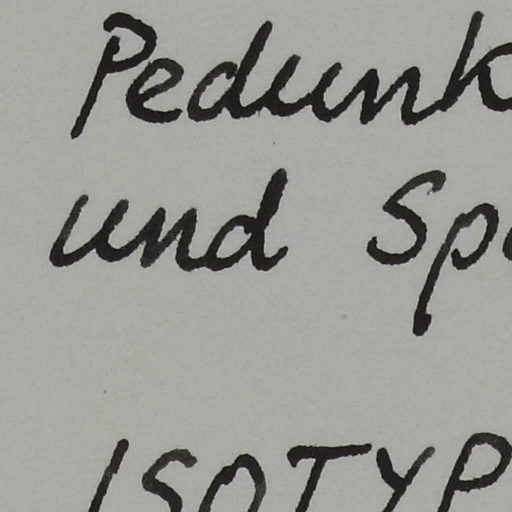 Pedunk
und Spa
ISOTYP